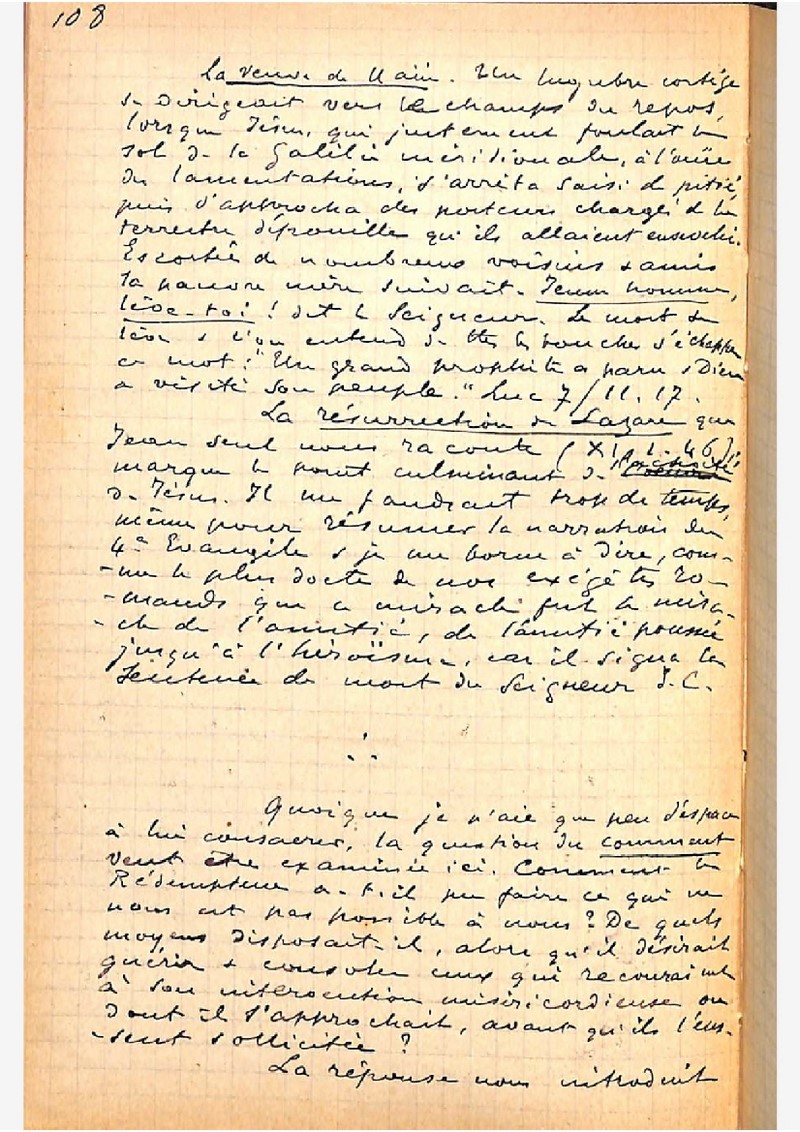 108
La veuve de Naïn. Un lugubre cortège
se dirigeait vers le champs du repos,
lorsque Jésus, qui justement foulait le
sol de la Galilée méridionale, à l'ouïe
des lamentations, s'arrêta saisi de pitié,
puis s'approcha des porteurs chargés de la
terrestre dépouille qu'ils allaient ensevelir.
Escortée de nombreux voisins & amis
la pauvre mère suivait. Jeune homme,
lève-toi ! dit le Seigneur. Le mort se
lève & l'on entend de ttes les bouches s'échapper
ce mot : "Un grand prophète a paru & Dieu
a visité son peuple." Luc 7/11.17.
La résurrection de Lazare que
Jean seul nous raconte (XI, 1-46),
marque le point culminant de
de Jésus. Il me faudrait trop de temps,
même pour résumer la narration du
4e Evangile & je me borne à dire, com-
-me le plus docte de nos exégètes ro-
-mands que ce miracle fut le mira-
-cle de l'amitié, de l'amitié poussée
jusqu'à l'héroïsme, car il signa la
sentence de mort du Seigneur J.-C.
Quoique je n'aie que peu d'espace
à lui consacrer, la question du comment
veut être examinée ici. Comment le
Rédempteur a-t-il pu faire ce qui ne
nous est pas possible à nous ? De quels
moyens disposait-il, alors qu'il désirait
guérir & consoler ceux qui recouraient
à son intercention miséricordieuse ou
dont il s'approchait, avant qu'ils l'eus-
-sent sollicitée ?
La réponse nous introduit